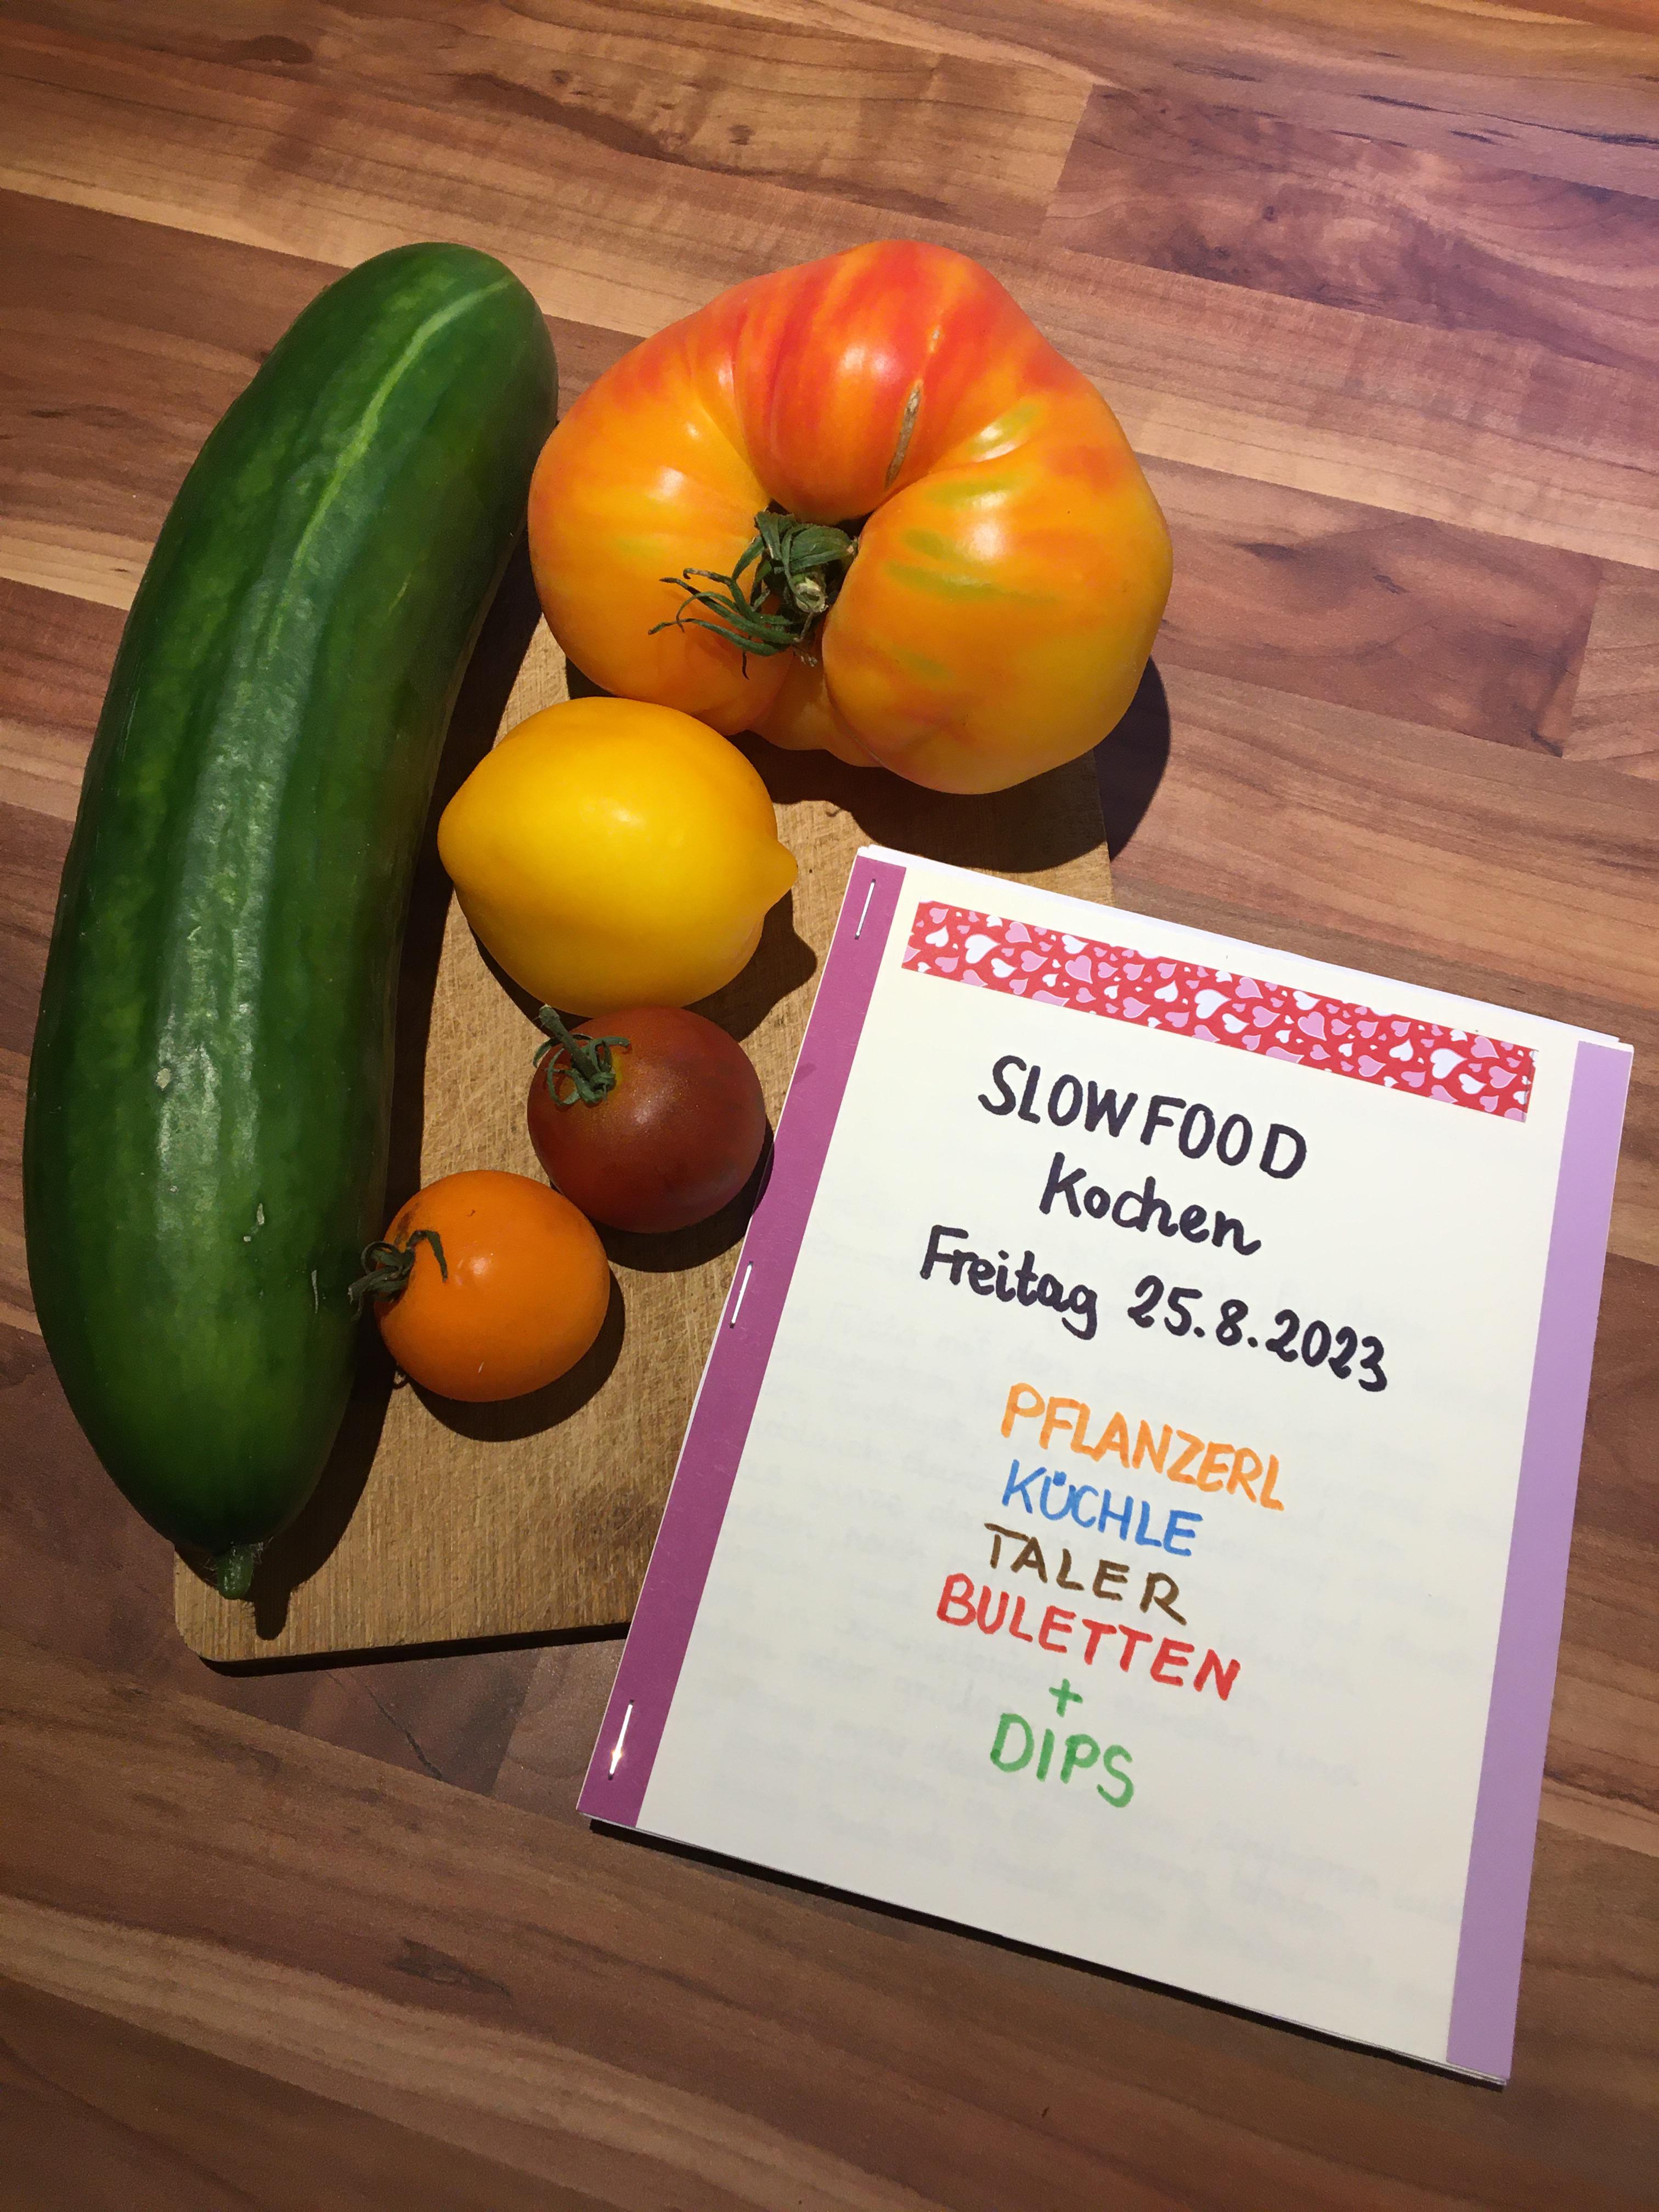 SLOWFOOD
Kochen
Freitag 25.8.2023
PFLANZERL
KÜCHLE
TALER
BULETTEN
+
DIPS